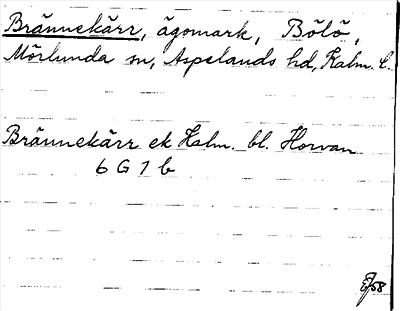 Brännekärr, ägomark, Bölö,
Mörlunda sn, Aspelands hd, Kalm. l.
Brännekärr ek Kalm. bl. Horvan
6 G 7 b